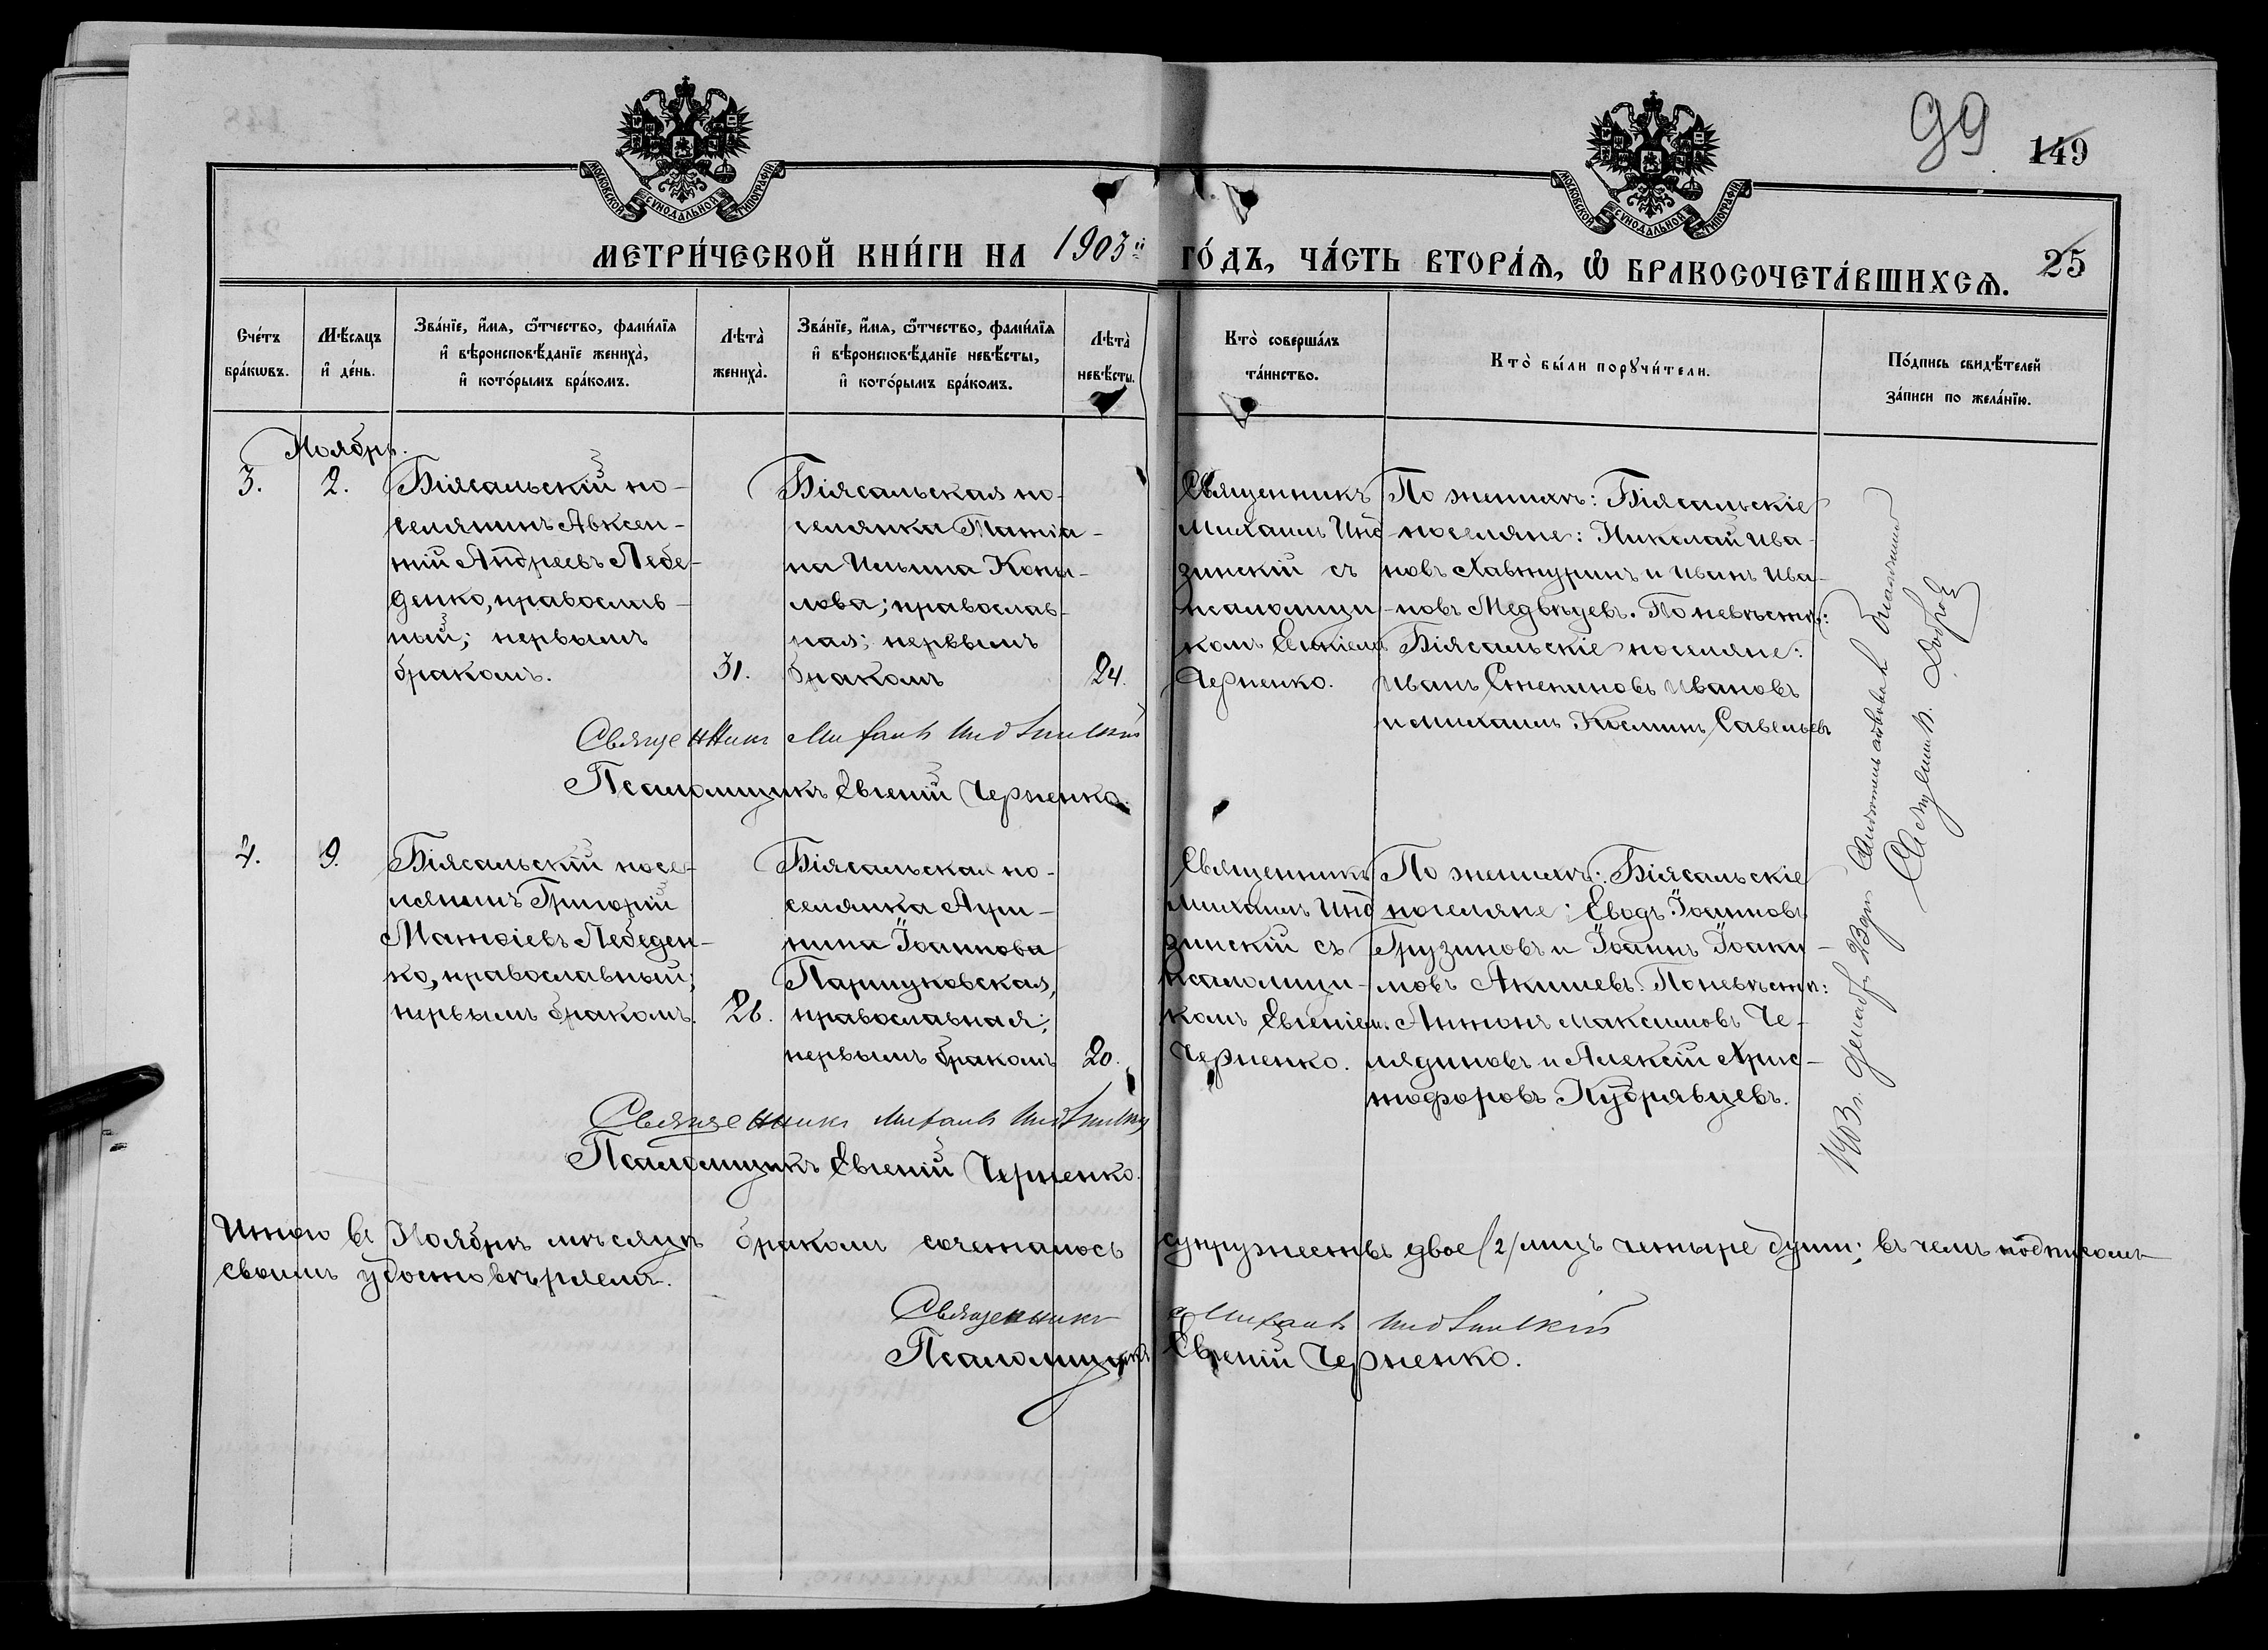 99
149
МОСКОВСКОЙ СѴНОДАЛЬНОЙ ТИПОГРАФІИ
МОСКОВСКОЙ СѴНОДАЛЬНОЙ ТИПОГРАФІИ
МЕТРИ́ЧЕСКОЙ КНИ́ГИ НА 1903й ГО́ДЪ, ЧА́СТЬ ВТОРА́Ѧ, Ѡ҆ БРАКОСОЧЕТА́ВШИХСѦ.
25
Сче́тъ бра́кωвъ.
Мѣ́сяцъ и҆ де́нь.
Зва́нїе, и҆́мя, ѻ҆́тчество, фами́лїя
и҆ вѣроисповѣ́данїе жениха̀,
и҆ кото́рымъ бра́комъ.
Лѣта̀ жениха̀.
Зва́нїе, и҆́мя, ѻ҆́тчество, фами́лїя
и҆ вѣроисповѣ́данїе невѣ́сты,
и҆ кото́рымъ бра́комъ.
Лѣта̀ невѣ́сты.
Кто̀ соверша́лъ
та́инство.
Кто̀ бы́ли порꙋчи́тели.
По́дпись свидѣ́телей
за́писи по жела́нїю.
Ноябрь.
3.
2.
Біясальскій по-
селянинъ Авксен-
тій Андреевъ Лебе-
денко, православ-
ный; первымъ
бракомъ.
31.
Біясальская по-
селянка Татіа-
на Ильина Копы-
лова; православ-
ная; первымъ
бракомъ
24.
Священникъ
Михаилъ Инд
зинскій съ
псаломщи-
комъ Евгеніемъ
Черненко.
По женихѣ: Біясальскіе
поселяне: Николай Ива-
новъ Хавжуринъ и Иванъ Ива-
новъ Медвѣдевъ. По невѣстѣ:
Біясальскіе поселяне:
Иванъ Ивановъ
и Михаилъ Косминъ Савельевъ
Священникъ Михаилъ
Псаломщикъ Евгеній Черненко.
4.
9.
Біясальскій посе-
лянинъ Григорій
Матѳіевъ Лебеден-
ко, православный;
первымъ бракомъ.
26.
Біясальская по-
селянка Агри-
пина Іоаннова
Паршуковская,
православная;
первымъ бракомъ
20.
Священникъ
Михаилъ Инд
зинскій съ
псаломщи-
комъ Евгеніем.
Черненко.
По женихѣ: Біясальскіе
поселяне: Еводъ Іоанновъ
Грузиновъ и Іоаннъ Іоаки-
мовъ Акишевъ. По невѣстѣ:
Антонъ Максимовъ Че-
лядиновъ и Алексій Хрис-
тофоровъ Кудрявцевъ.
Священникъ Михаилъ
Псаломщикъ Евгеній Черненко.
1903 г. Декабр.
Священ. П. Добров
Итого въ Ноябрѣ мѣсяцѣ бракомъ сочеталось супружествъ двое (2) лицъ четыре души; въ чемъ подписомъ
своимъ удостовѣряемъ.
Священникъ Михаилъ
Псаломщикъ Евгеній Черненко.